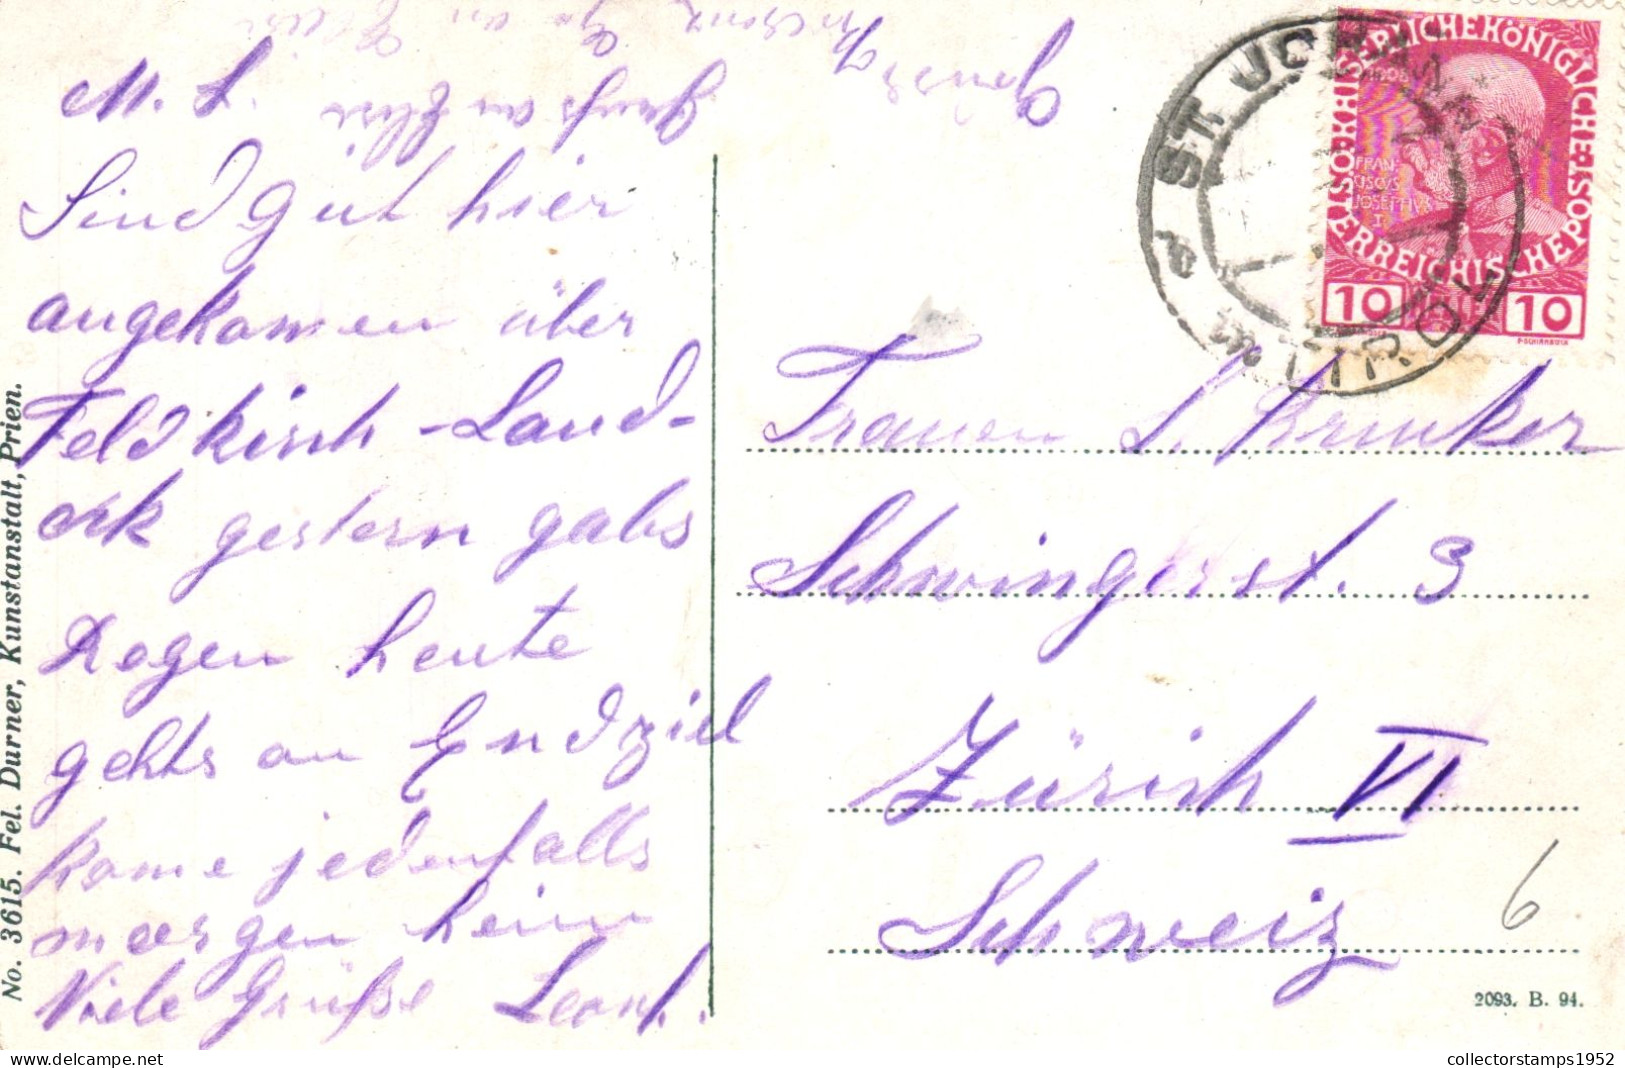 M. L.
Sind gut hier
angekommen über
Feldkirch - Land-
eck gestern gabs
Regen heute
gehts an Endziel
kome jedenfalls
morgen heim
Viele Grüße Leonh.
No. 3615. Fel. Durner, Kunstanstalt, Prien.
ST. JOH
TIROL
KAISERLICHE KÖNIGLICHE
ÖSTERREICHISCHE POST
1908
FRAN-
CISCVS
JOSEPHVS
I
10 10
Frauen L. Brunker
Schwingerst. 3
Zürich VI
Schweiz
6
2093. B. 94.
collectorstamps1952